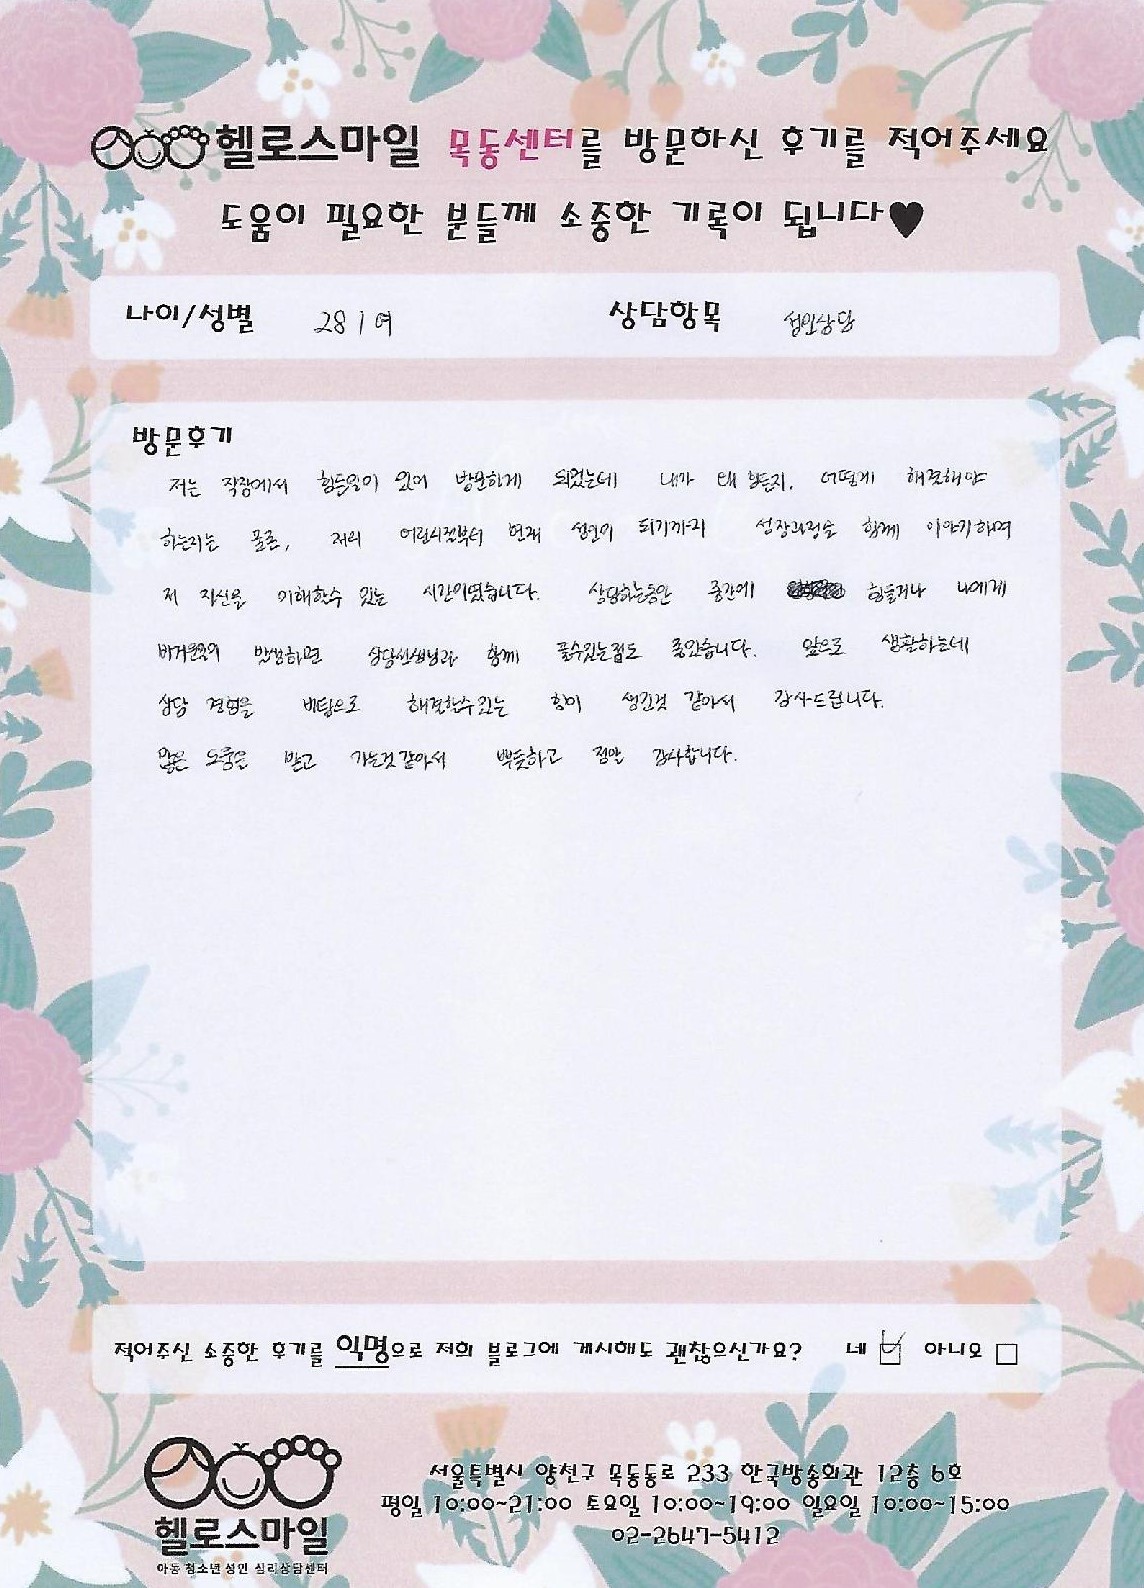 헬로스마일 목동센터를 방문하신 후기를 적어주세요
도움이 필요한 분들께 소중한 기록이 됩니다♥
나이/성별 28 / 여 상담항목 성인상담
방문후기
저는 직장에서 힘든일이 있어 방문하게 되었는데 내가 왜 힘든지, 어떻게 해결해야
하는지는 물론, 저의 어린시절부터 현재 성인이 되기까지 성장과정을 함께 이야기하며
저 자신을 이해할수 있는 시간이었습니다. 상담하는동안 중간에 힘들거나 나에게
버거운일이 발생하면 상담선생님과 함께 풀수있는점도 좋았습니다. 앞으로 생활하는데
상담 경험을 바탕으로 해결할수있는 힘이 생긴것 같아서 감사드립니다.
많은 도움을 받고 가는것같아서 뿌듯하고 정말 감사합니다.
적어주신 소중한 후기를 익명으로 저희 블로그에 게시해도 괜찮으신가요? 네 ☑ 아니오 □
헬로스마일
아동 청소년 성인 심리상담센터
서울특별시 양천구 목동동로 233 한국방송회관 12층 6호
평일 10:00~21:00 토요일 10:00~19:00 일요일 10:00~15:00
02-2647-5412